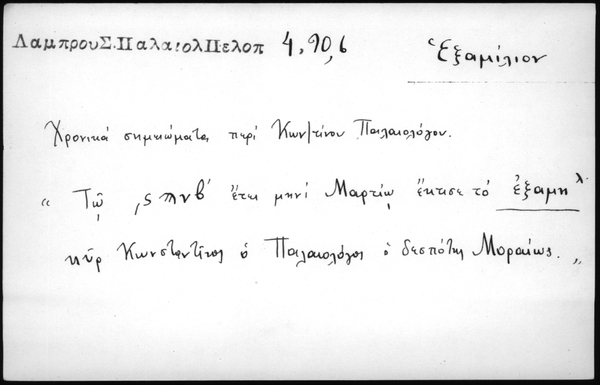 ΛαμπρουΣ.ΠαλαιολΠελοπ 4, 90, 6
Ἑξαμίλιον
Χρονικά σημειώματα περί Κων/τίνου Παλαιολόγου.
" Τῷ ,ςπνβ' ἔτει μηνί Μαρτίῳ ἔκτισε τό ἑξαμηλ.
κῦρ Κωνσταντῖνος ὁ Παλαιολόγος ὁ δεσπότης Μοραίως. "